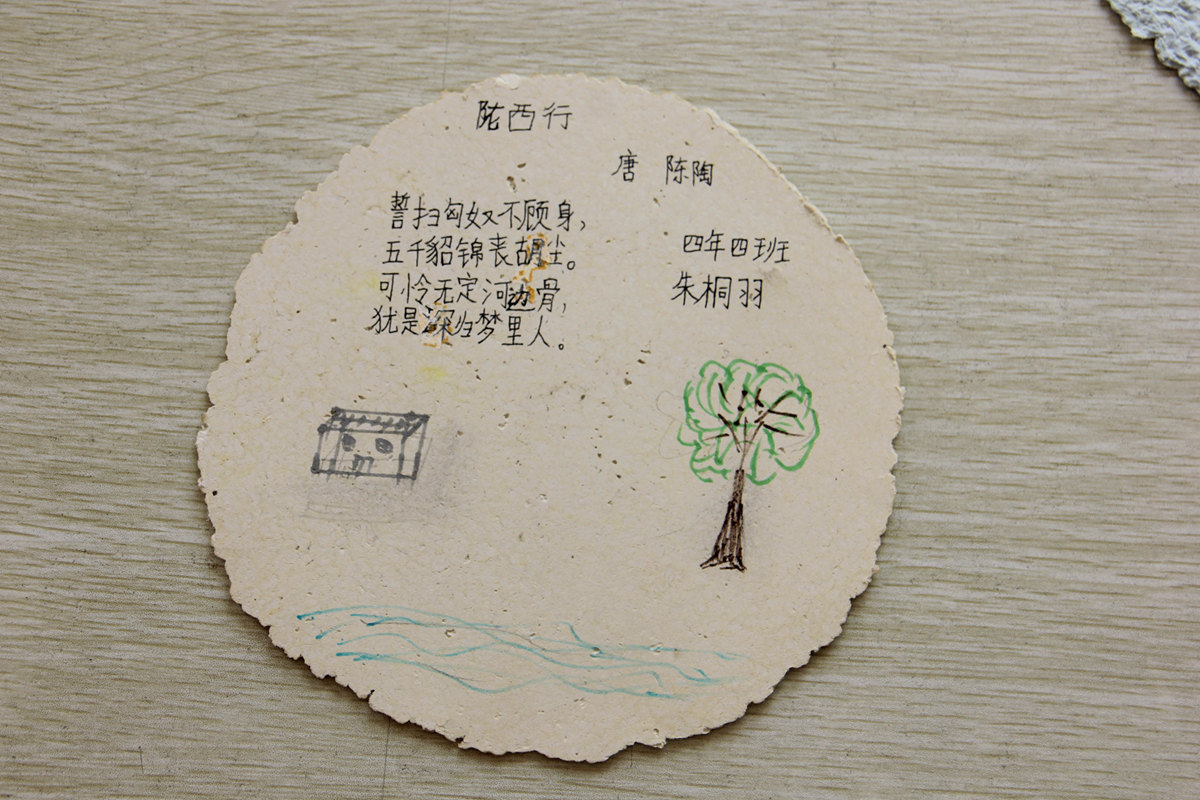 陇西行
唐 陈陶
誓扫匈奴不顾身,
五千貂锦丧胡尘。
可怜无定河边骨,
犹是深归梦里人。
四年四班
朱桐羽